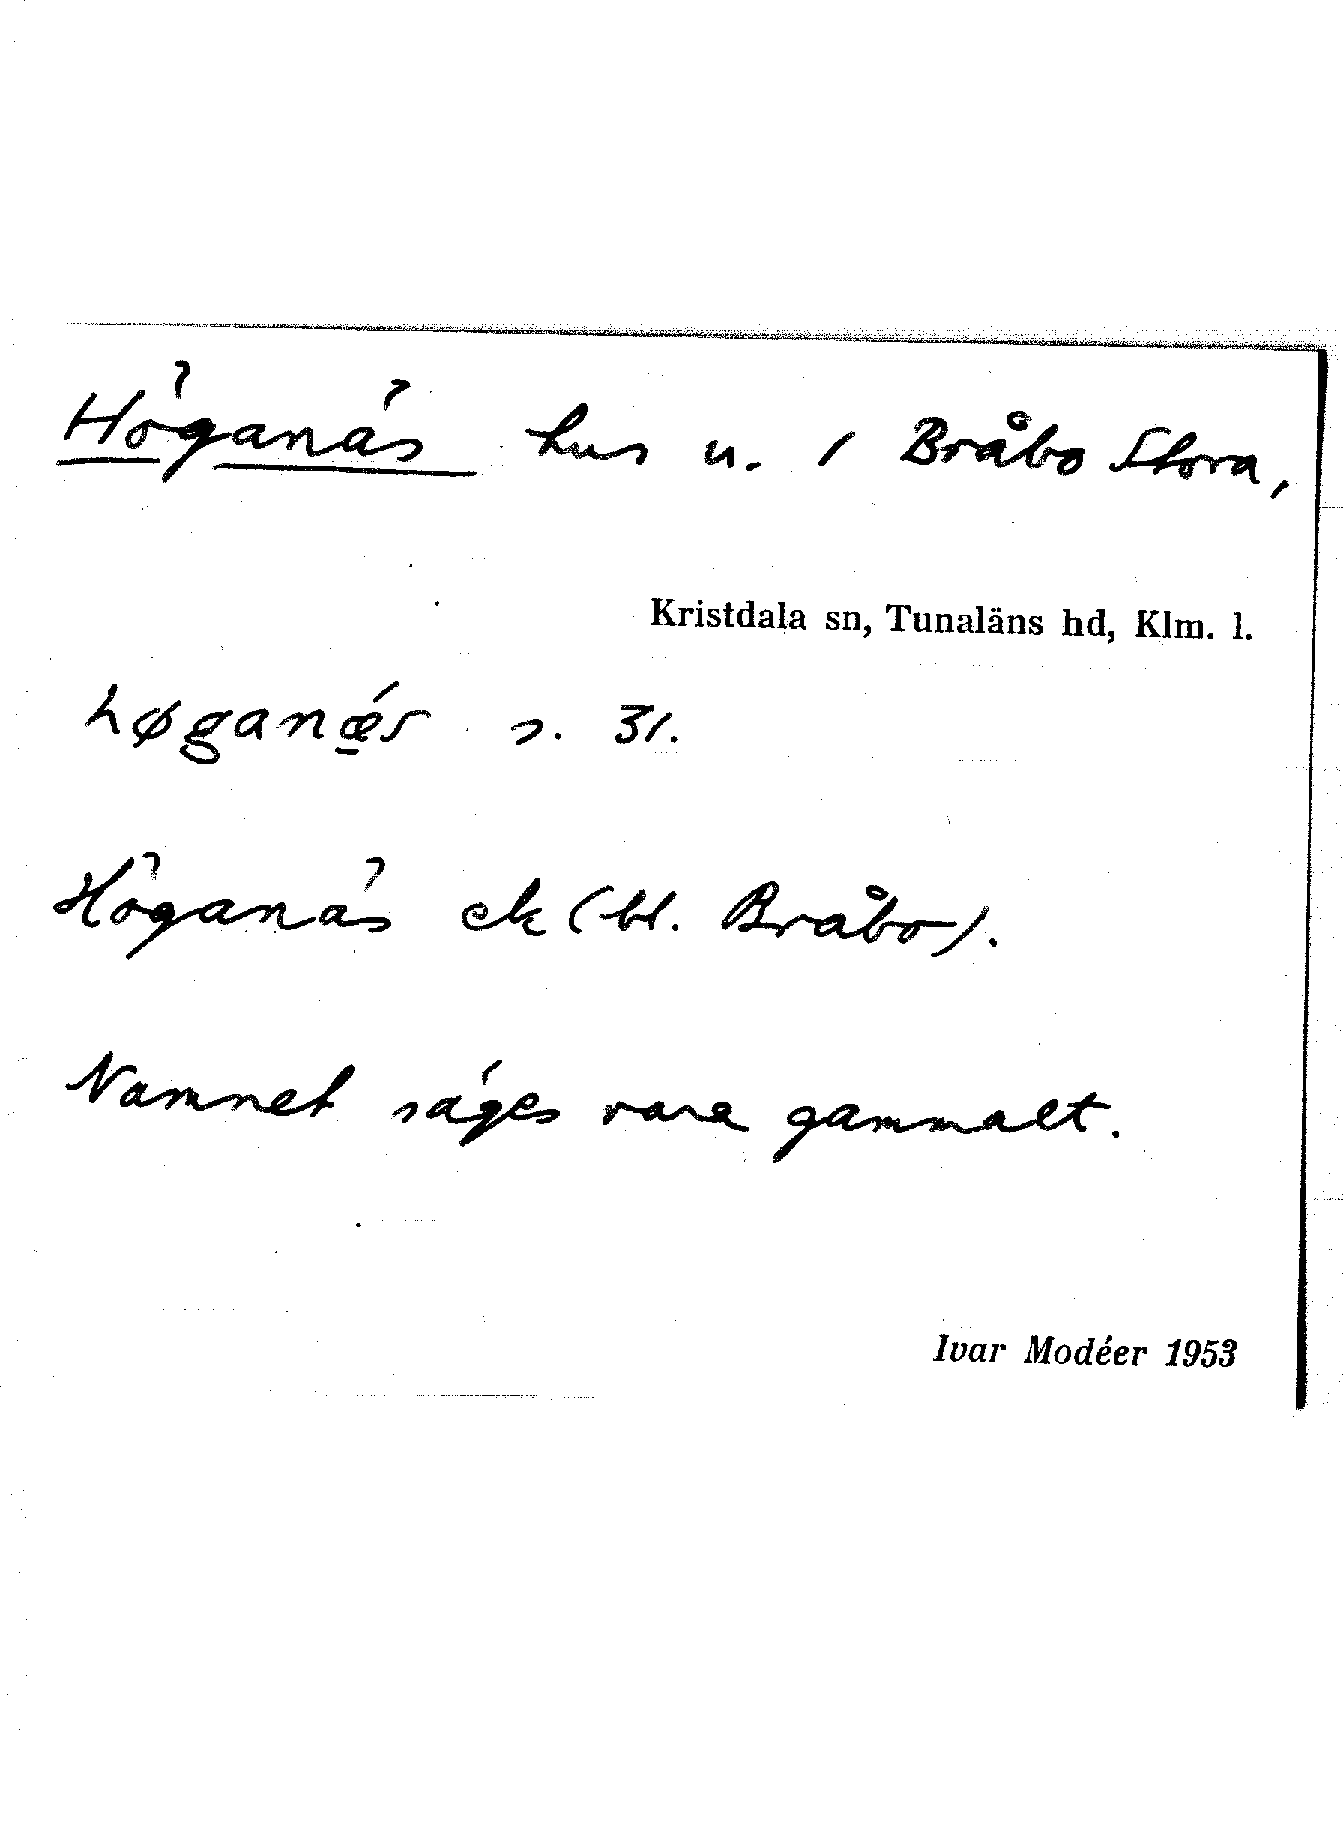 Höganäs hus u. / Bråbo Stora,
Kristdala sn, Tunaläns hd, Klm. l.
høganǽ̱s s. 31.
Höganäs ek (bl. Bråbo).
Namnet säges vara gammalt.
Ivar Modéer 1953